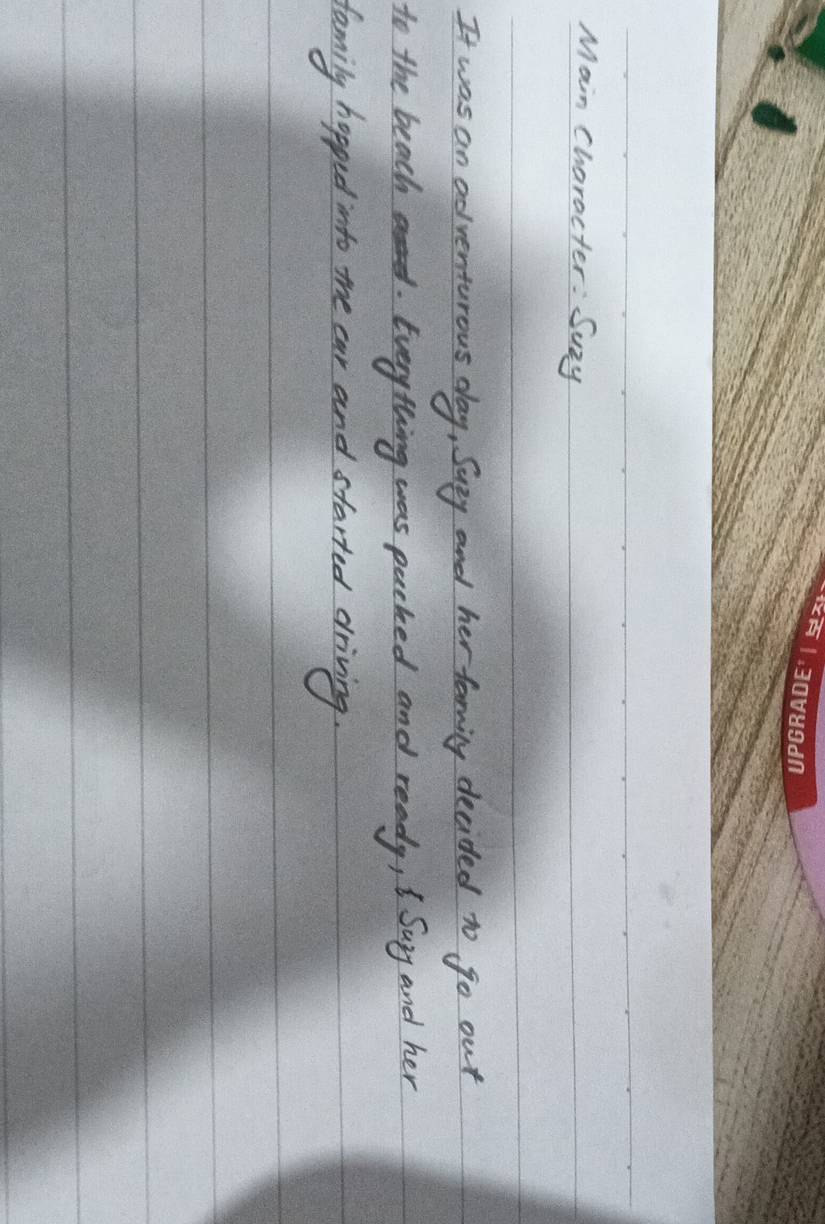 Main Character: Suzy
It was an adventurous day, Suzy and her family decided to go out
to the beach. Everything was packed and ready, Suzy and her
family hopped into the car and started driving.
UPGRADE